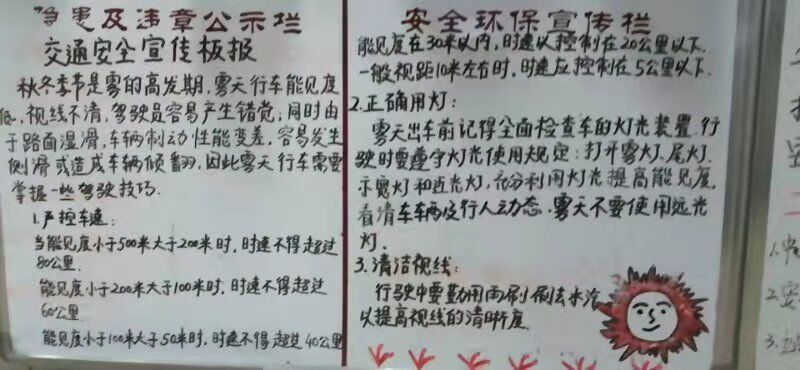 隐患及违章公示栏
交通安全宣传板报
秋冬季节是雾的高发期，雾天行车能见度
低，视线不清，驾驶员容易产生错觉；同时由
于路面湿滑，车辆制动性能变差，容易发生
侧滑或造成车辆倾翻，因此雾天行车需要
掌握一些驾驶技巧.
1.严控车速：
当能见度小于500米大于200米时，时速不得超过
80公里.
能见度小于200米大于100米时，时速不得超过
60公里.
能见度小于100米大于50米时，时速不得超过40公里
安全环保宣传栏
能见度在30米以内，时速以控制在20公里以下.
一般视距10米左右时，时速应控制在5公里以下.
2.正确用灯：
雾天出车前记得全面检查车的灯光装置.行
驶时要遵守灯光使用规定：打开雾灯、尾灯、
示宽灯和近光灯，充分利用灯光提高能见度，
看清车车辆及行人动态.雾天不要使用远光
灯.
3.清洁视线：
行驶中要勤用雨刷刷去水汽
以提高视线的清晰度.